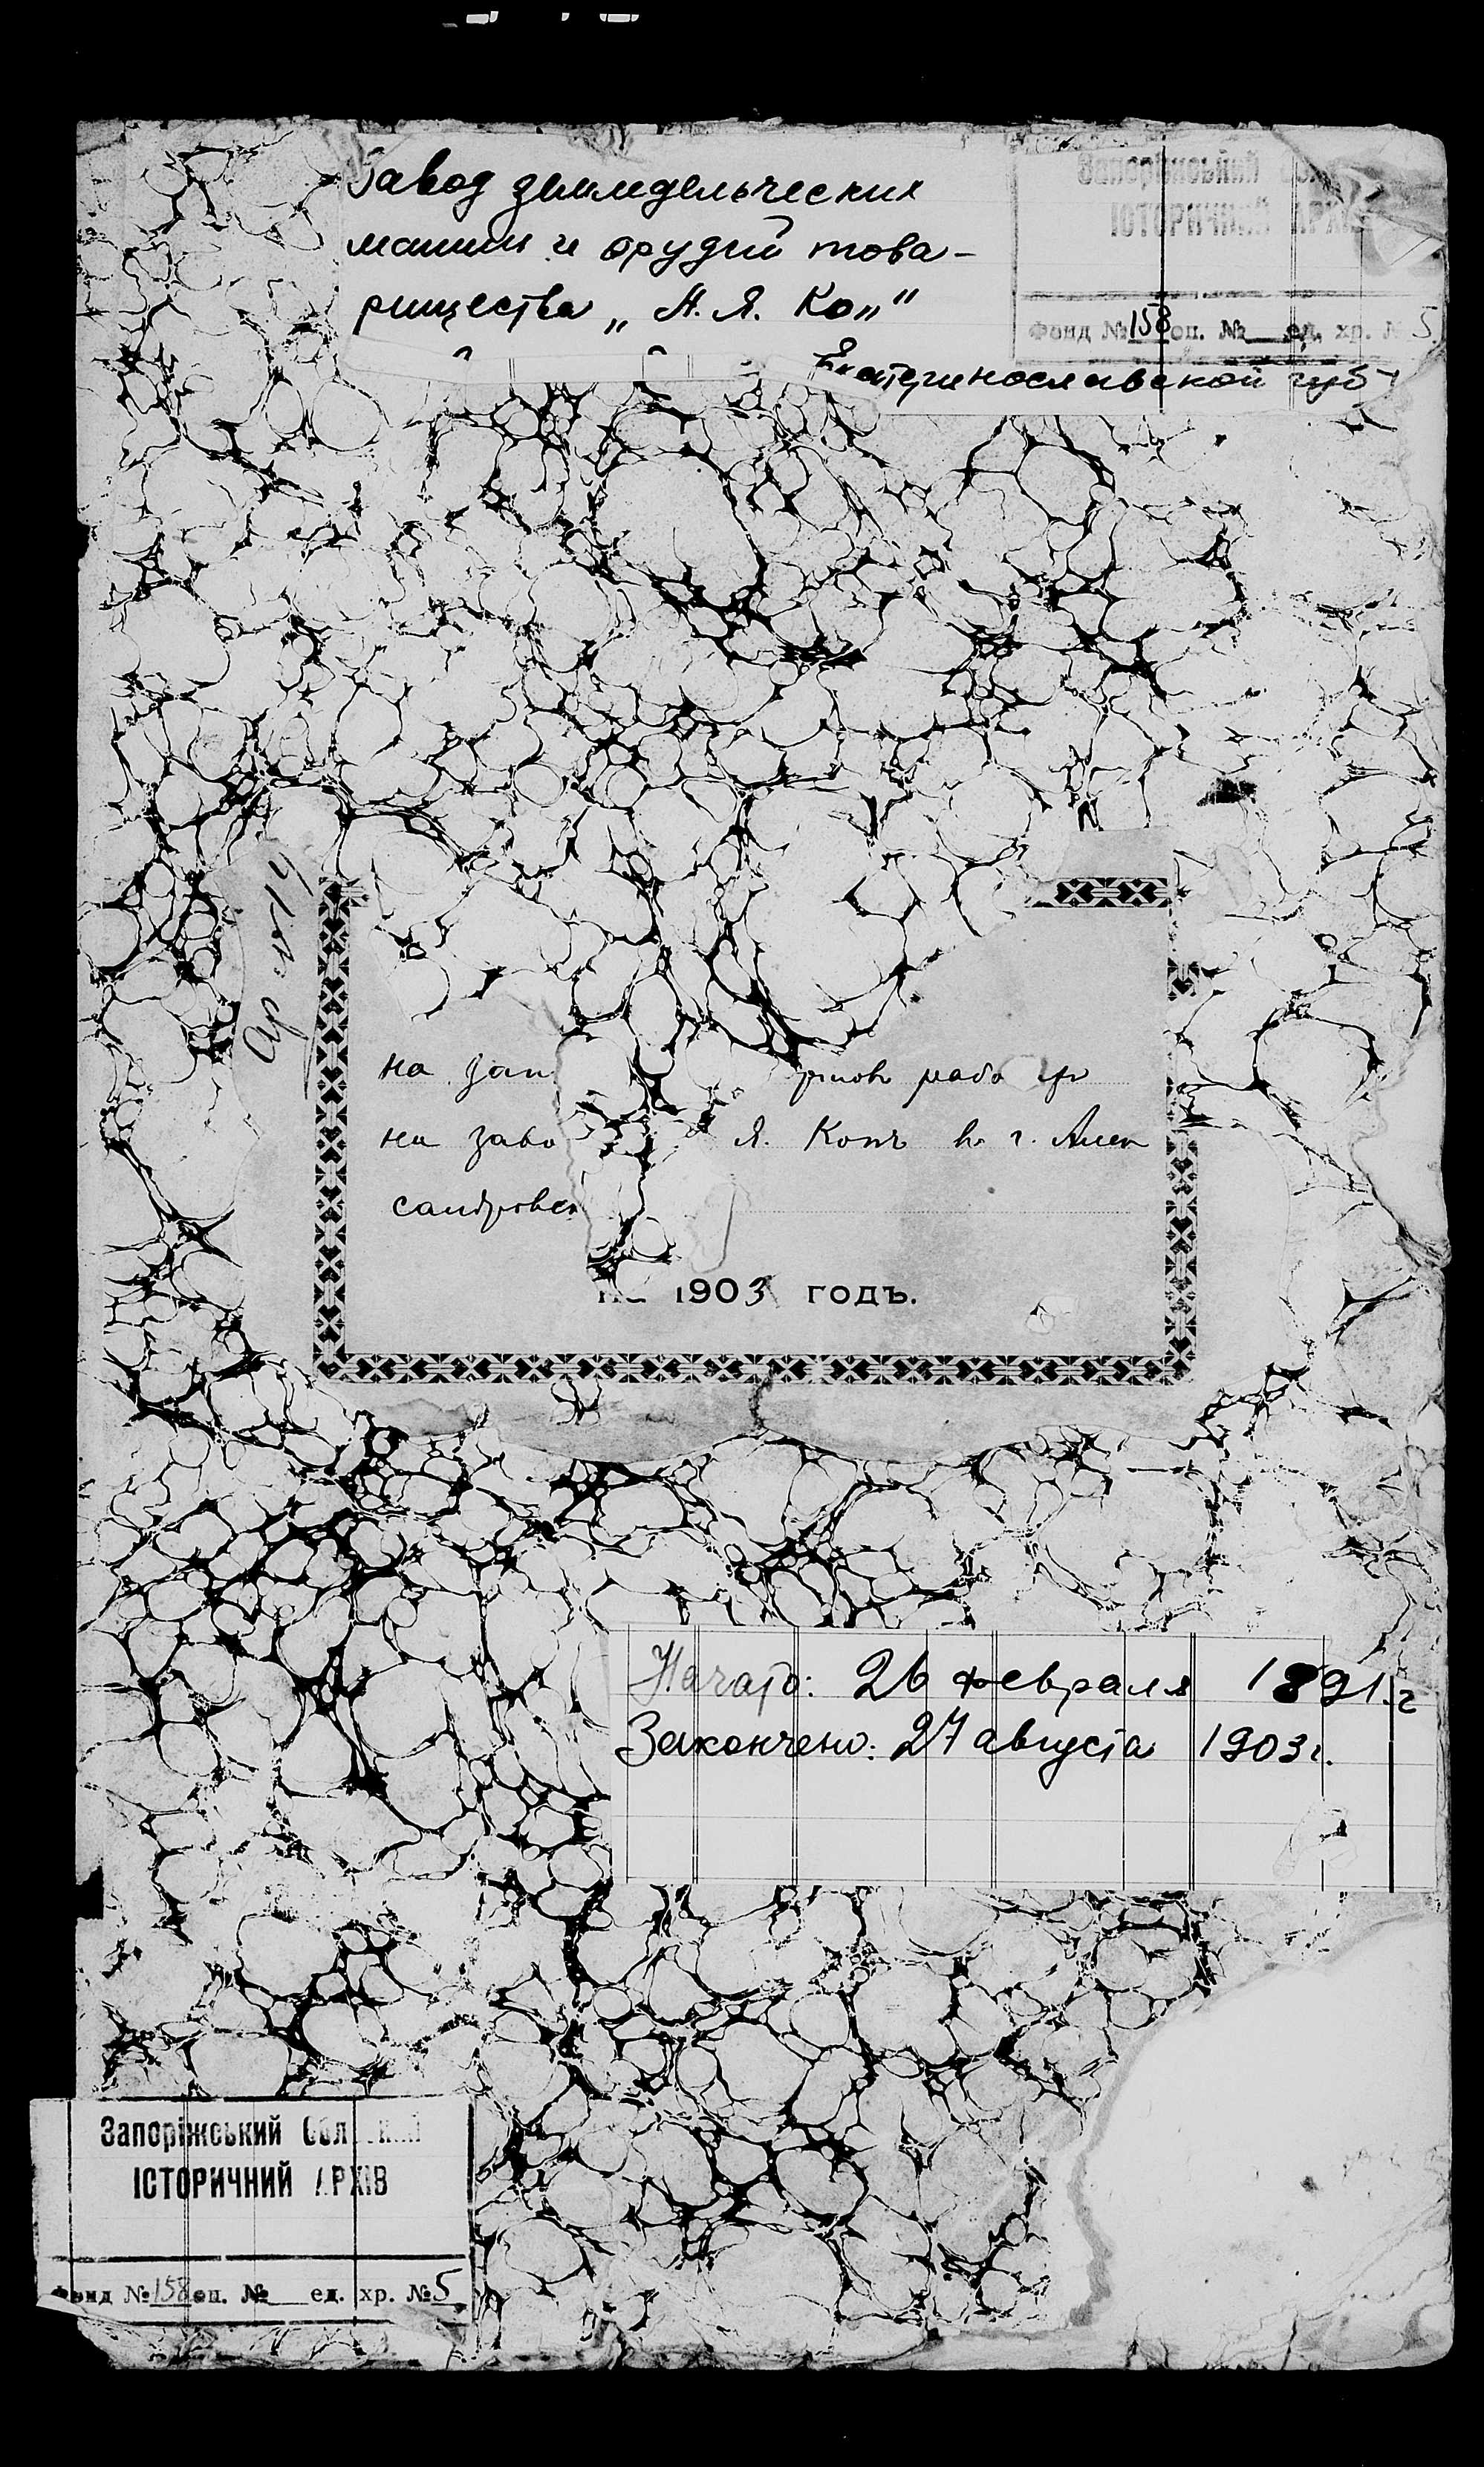 Завод земледельческих
машин и орудий това-
рищества „А. Я. Коп"
Екатеринославской губ
Запоріжський
ІСТОРИЧНИЙ АРХІВ
Фонд № 158 оп. № ед. хр. № 5
на зап
на заво Я. Копъ в г. Алек
сандровск
на 1903 годъ.
Начато: 26 февраля 1891 г
Закончено: 27 августа 1903 г.
Запоріжський
ІСТОРИЧНИЙ АРХІВ
Фонд № 158 оп. № ед. хр. № 5